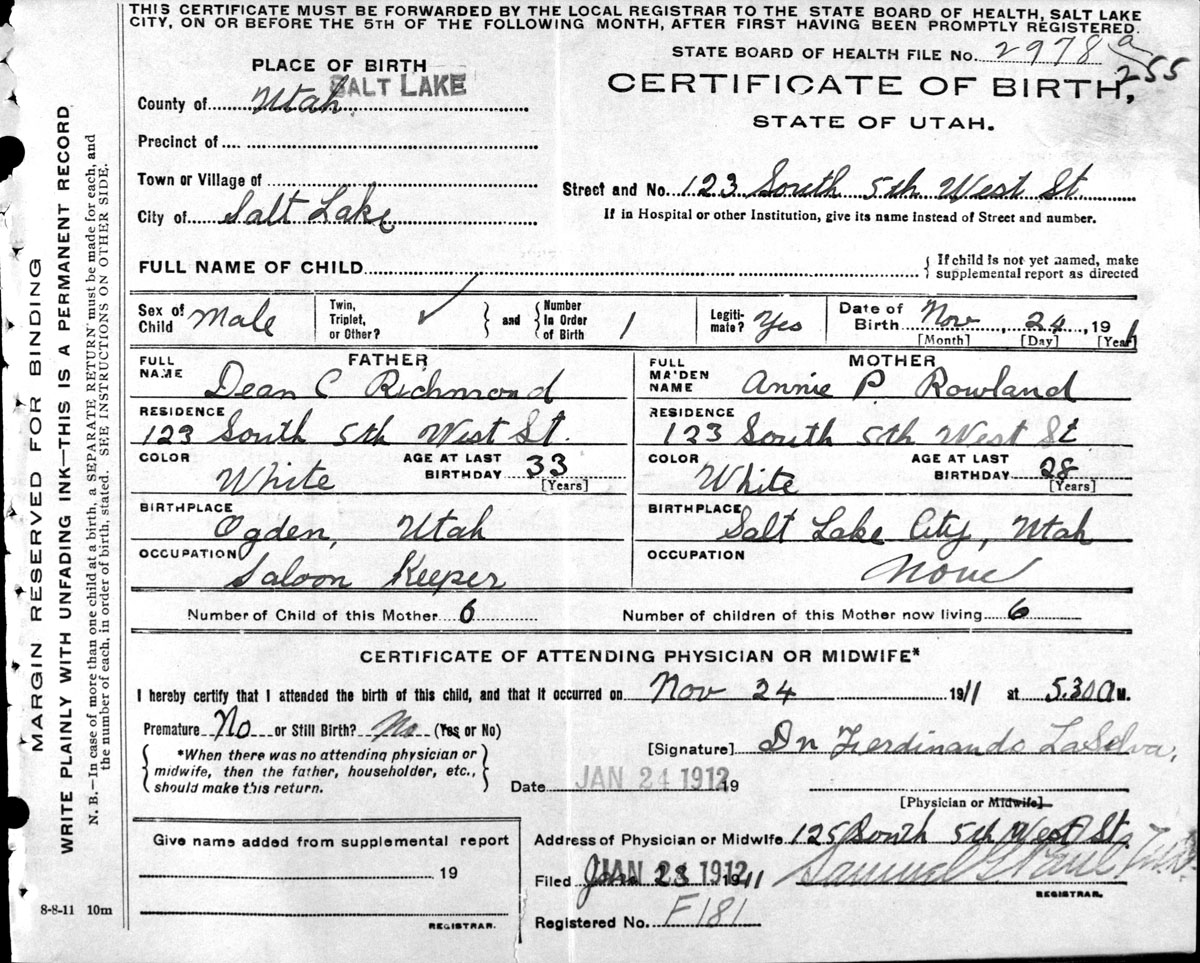 THIS CERTIFICATE MUST BE FORWARDED BY THE LOCAL REGISTRAR TO THE STATE BOARD OF HEALTH, SALT LAKE
CITY, ON OR BEFORE THE 5TH OF THE FOLLOWING MONTH, AFTER FIRST HAVING BEEN PROMPTLY REGISTERED.
STATE BOARD OF HEALTH FILE No. 2978 a
255
PLACE OF BIRTH
CERTIFICATE OF BIRTH,
STATE OF UTAH.
SALT LAKE
County of Utah
Precinct of
Town or Village of
Street and No. 123 South 5th West St
City of Salt Lake
If in Hospital or other Institution, give its name instead of Street and number.
FULL NAME OF CHILD
If child is not yet named, make
supplemental report as directed
Sex of Child Male
Twin, Triplet, or Other? ✓ and Number In Order of Birth 1
Legiti-mate? Yes
Date of Birth Nov, 24, 191
[Month] [Day] [Year]
FATHER
FULL NAME Dean C Richmond
RESIDENCE
123 South 5th West St.
COLOR White AGE AT LAST BIRTHDAY 33
[Years]
BIRTHPLACE
Ogden, Utah
OCCUPATION
Saloon Keeper
MOTHER
FULL MAIDEN NAME Annie P. Rowland
RESIDENCE
123 South 5th West St
COLOR White AGE AT LAST BIRTHDAY 28
[Years]
BIRTHPLACE Salt Lake City, Utah
OCCUPATION
None
Number of Child of this Mother 6 Number of children of this Mother now living 6
CERTIFICATE OF ATTENDING PHYSICIAN OR MIDWIFE*
I hereby certify that I attended the birth of this child, and that it occurred on Nov 24 1911 at 5.30 A M.
Premature No or Still Birth? No (Yes or No)
*When there was no attending physician or
midwife, then the father, householder, etc.,
should make this return.
[Signature] Dr Ferdinando LaSelva,
Date JAN 24 1912 19
[Physician or Midwife]
Give name added from supplemental report
19
REGISTRAR.
Address of Physician or Midwife 125 South 5th West St,
Filed JAN 23 1912 1911 Samuel G Paul
REGISTRAR.
Registered No. F181
8-8-11 10m
MARGIN RESERVED FOR BINDING
WRITE PLAINLY WITH UNFADING INK—THIS IS A PERMANENT RECORD
N. B.—In case of more than one child at a birth, a SEPARATE RETURN must be made for each, and
the number of each, in order of birth, stated. SEE INSTRUCTIONS ON OTHER SIDE.